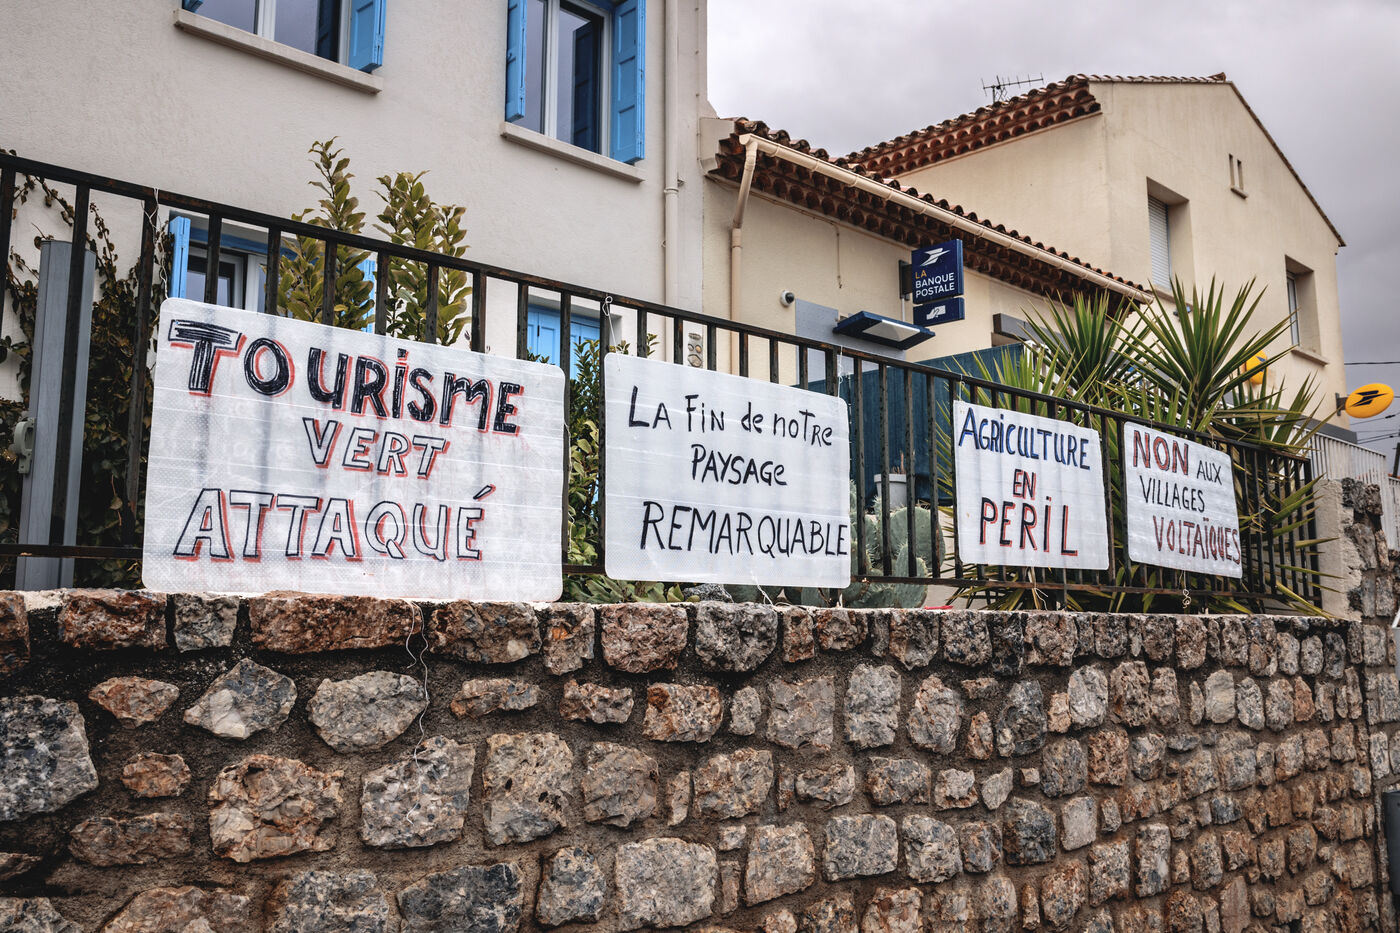 TOURISME
VERT
ATTAQUÉ
LA FIN de NOTRE
PAYSAGE
REMARQUABLE
AGRICULTURE
EN
PERIL
NON AUX
VILLAGES
VOLTAÏQUES
LA
BANQUE
POSTALE